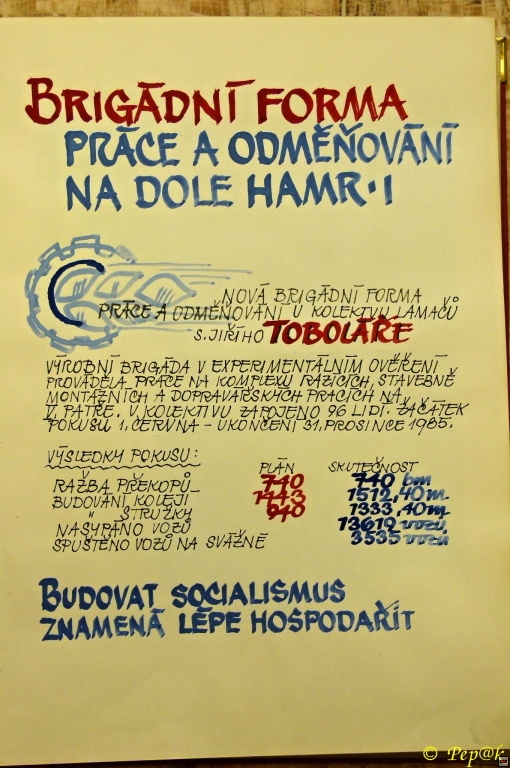 BRIGÁDNÍ FORMA
PRÁCE A ODMĚŇOVÁNÍ
NA DOLE HAMR·I
NOVÁ BRIGÁDNÍ FORMA
PRÁCE A ODMĚŇOVÁNÍ U KOLEKTIVU LAMAČŮ
S. JIŘÍHO TOBOLÁŘE
VÝROBNÍ BRIGÁDA V EXPERIMENTÁLNÍM OVĚŘENÍ
PROVÁDĚLA PRÁCE NA KOMPLEXU RAZÍCÍCH, STAVEBNĚ
MONTÁŽNÍCH A DOPRAVÁŘSKÝCH PRACÍCH NA
V. PATŘE. V KOLEKTIVU ZAPOJENO 96 LIDÍ. ZAČÁTEK
POKUSU 1. ČERVNA - UKONČENÍ 31. PROSINCE 1985.
VÝSLEDKY POKUSU: PLÁN SKUTEČNOST
RAŽBA PŘEKOPŮ 740 740 bm
BUDOVÁNÍ KOLEJÍ 1443 1512,40 m
" STRUŽKY 940 1333,40 m
NASYPÁNO VOZŮ 13619 vozů,
SPUŠTĚNO VOZŮ NA SVÁŽNĚ 3535 vozů
BUDOVAT SOCIALISMUS
ZNAMENÁ LÉPE HOSPODAŘIT
© Pep@k